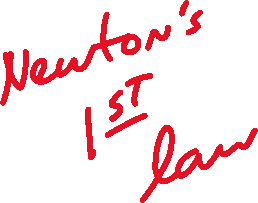 Newton's
1ST
law